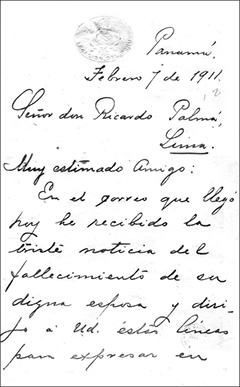 Panamá.
Febrero 7 de 1911.
Señor don Ricardo Palma,
Lima.
Muy estimado Amigo:
En el correo que llegó
hoy he recibido la
triste noticia del
fallecimiento de su
digna esposa y diri-
jo á Ud. estas líneas
para expresar en